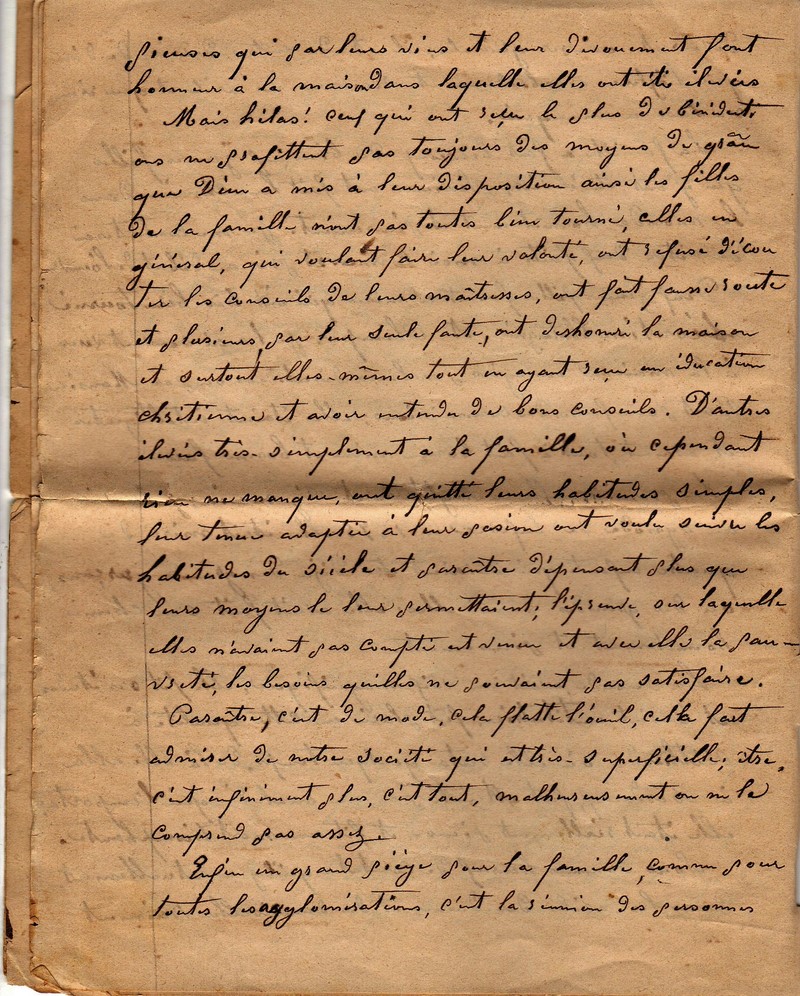 pieuses qui par leurs vies et leur dévouement font
honneur à la maison dans laquelle elles ont été élevées
Mais hélas! ceux qui ont reçu le plus de bénédicti
ons ne profittent pas toujours des moyens de grâce
que Dieu a mis à leur disposition ainsi les filles
de la famille n'ont pas toutes bien tourné, celles en
général, qui voulant faire leur volonté, ont refusé d'écou
ter les conseils de leurs maîtresses, ont fait fausse route
et plusieurs, par leur seule faute, ont deshonoré la maison
et surtout elles-mêmes tout en ayant reçu un éducation
chrétienne et avoir entendu de bons conseils. D'autres
élevées très-simplement à la famille, où cependant
rien ne manque, ont quitté leurs habitudes simples,
leur tenue adaptée à leur posion ont voulu suivre les
habitudes du siècle et paraître dépensant plus que
leurs moyens le leur permettaient; l'épreuve, sur laquelle
elles n'avaient pas compté est venue et avec elle la pau-
vreté, les besoins quilles ne pouvaient pas satisfaire.
Paraître, c'est de mode, cela flatte l'oeuil, cella fait
admirer de notre société qui est très-superficielle; être,
c'est infiniment plus, c'est tout, malheureusement on ne le
comprend pas assez.
Enfin un grand piège pour la famille, comme pour
toutes les agglomérations, c'est la réunion des personnes